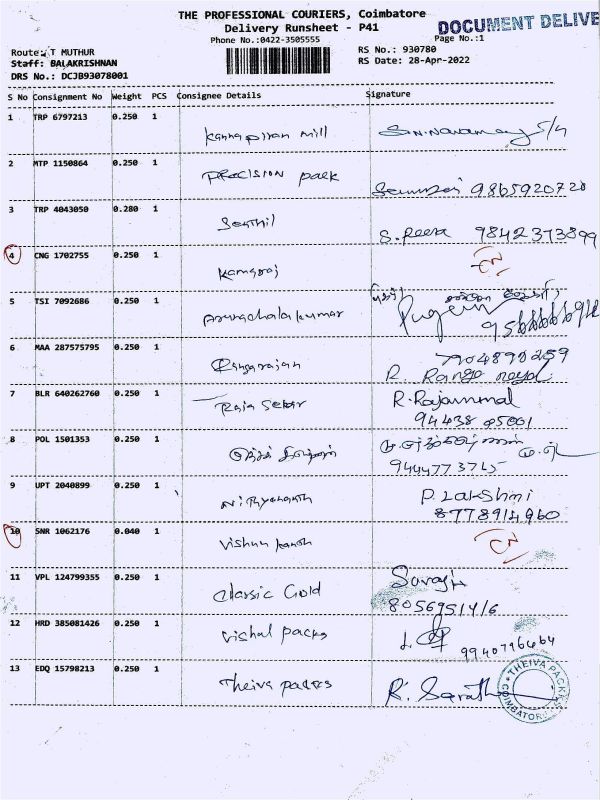 THE PROFESSIONAL COURIERS, Coimbatore
Delivery Runsheet - P41
DOCUMENT DELIVE
Phone No.:0422-3505555
Page No.:1
Route: T MUTHUR
RS No.: 930780
Staff: BALAKRISHNAN
RS Date: 28-Apr-2022
DRS No.: DCJB93078001
S No Consignment No Weight PCS Consignee Details Signature
1 TRP 6797213 0.250 1
Kannapiran mill
2 MTP 1150864 0.250 1
PRECISION pack
9865920720
3 TRP 4043050 0.280 1
Senthil
S. Reeta 9842373899
4 CNG 1702755 0.250 1
Kamaraj
5 TSI 7092686 0.250 1
Arunachala kumar
6 MAA 287575795 0.250 1
7904890259
Rangarajan
7 BLR 640262760 0.250 1
Raja Sekar
R. Rajammal
94438 85001
8 POL 1501353 0.250 1
9444773715
9 UPT 2040899 0.250 1
Nithyananth
P. Lakshmi
8778914960
10 SNR 1062176 0.040 1
Vishnu kanth
11 VPL 124799355 0.250 1
Classic Gold
Saroja
12 HRD 385081426 0.250 1
Vishal packs
9940796464
13 EDQ 15798213 0.250 1
Theiva packs
R. Sarath
THEIVA PACKS
COIMBATORE